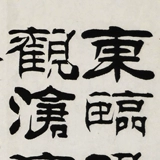 東臨
觀滄